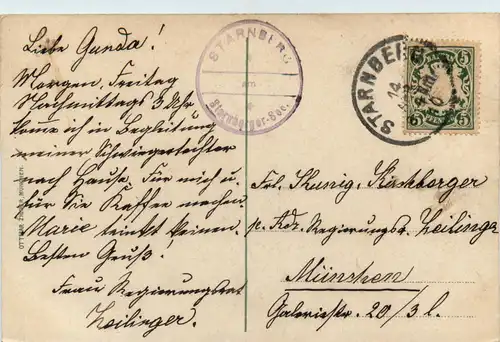 Liebe Gunda!
Morgen, Freitag
Nachmittags 3 Uhr
komme ich in Begleitung
meiner Schwiegertochter
nach Hause. Für mich u.
für Sie Kaffee machen.
Marie trinkt keinen.
Besten Gruß!
Frau Regierungsrat
Zeilinger.
STARNBERG
am
Starnberger-See.
STARNBERG
14
5
5
Frl. Kunig. Kirchberger
p. Adr. Regierungsr. Zeilinger
München
Galeriestr. 20/3 l.